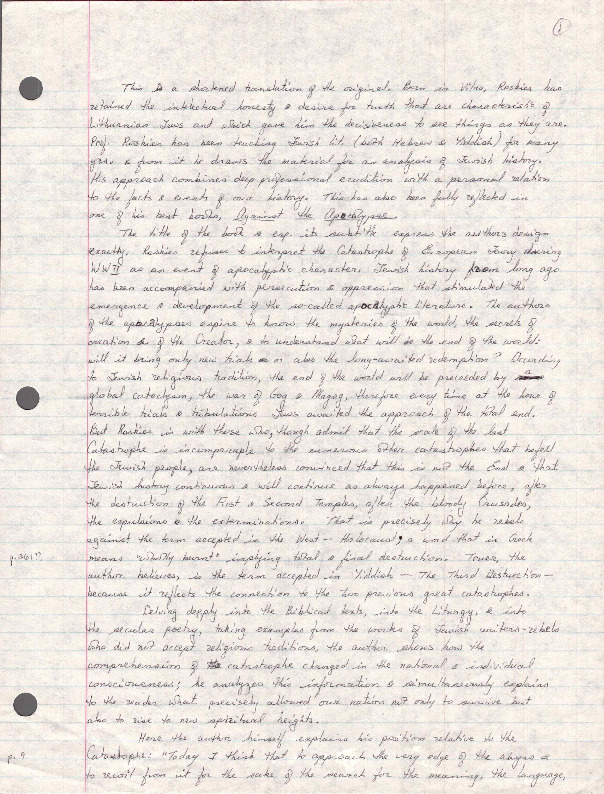 1
This is a shortened translation of the original. Born in Vilna, Roskies has
retained the intellectual honesty & desire for truth that are characteristic of
Lithuanian Jews and which gave him the decisiveness to see things as they are.
Prof. Roskies has been teaching Jewish lit (both Hebrew & Yiddish) for many
yrs. & from it he draws the material for an analysis of Jewish history.
His approach combines deep professional erudition with a personal relation
to the facts & events of our history. This has also been fully reflected in
one of his best books, Against the Apocalypse
The title of the book & esp. its subtitle express the authors design
exactly. Roskies refuses to interpret the Catastrophe of European Jewry during
WWII as an event of apocalyptic character. Jewish history from long ago
has been accompanied with persecution & oppression that stimulated the
emergence & development of the so-called apocalyptic literature. The authors
of the apocalypses aspire to know the mysteries of the world, the secrets of
creation & of the Creator, & to understand what will be the end of the world:
will it bring only new trials or also the long-awaited redemption? According
to Jewish religious tradition, the end of the world will be preceded by
global cataclysm, the war of Gog & Magog, therefore every time at the hour of
terrible trials & tribulations Jews awaited the approach of the total end.
But Roskies is with those who, though admit that the scale of the last
Catastrophe is incomparable to the numerous other catastrophes that befell
the Jewish people, are nevertheless convinced that this is not the End & that
Jewish history continuous & will continue as always happened before, after
the destruction of the First & Second Temples, after the bloody Crusades,
the expulsions & the exterminations. That is precisely why he rebels
against the term accepted in the West — Holocaust, a word that in Greek
p. 261?
means "wholly burnt" implying total & final destruction. Truer, the
author believes, is the term accepted in Yiddish — The Third Destruction —
because it reflects the connection to the two previous great catastrophes.
Delving deeply into the Biblical texts, into the Liturgy, & into
the secular poetry, taking examples from the works of Jewish writers-rebels
who did not accept religious traditions, the author shows how the
comprehension of the catastrophe changed in the national & individual
consciousness; he analyzes this information & simultaneously explains
to the reader what precisely allowed our nation not only to survive but
also to rise to new spiritual heights.
Here the author himself explains his position relative to the
p. 9
Catastrophe: "Today I think that to approach the very edge of the abyss &
to recoil from it for the sake of the search for the meaning, the language,